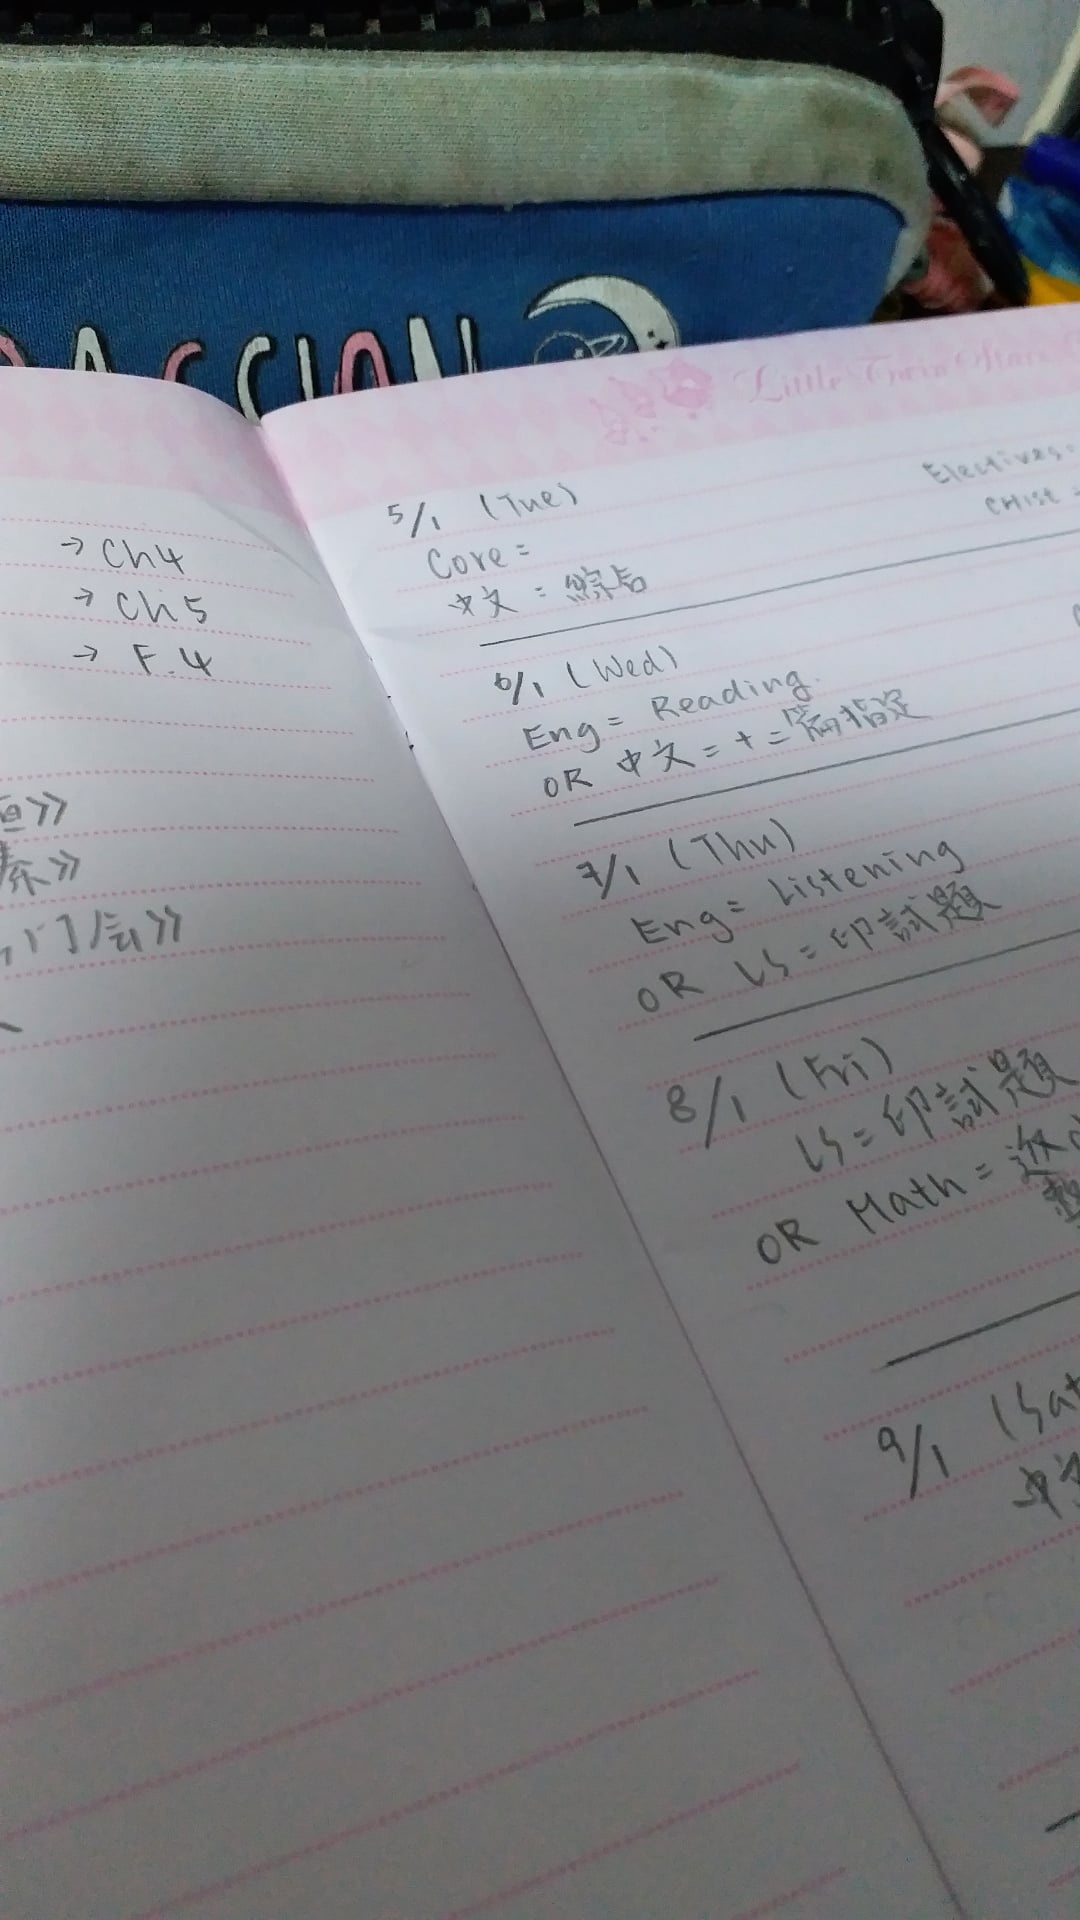 PASSION
Little Twin Stars
→ Ch4
→ Ch5
→ F.4
》
》
》
5/1 (Tue)
Electives:
Core =
CHist =
中文 = 綜合
6/1 (Wed)
Eng = Reading.
OR 中文 = 十二篇指定
7/1 (Thu)
Eng = Listening
OR LS = 印試題
8/1 (Fri)
LS = 印試題
OR Math =
9/1 (Sat